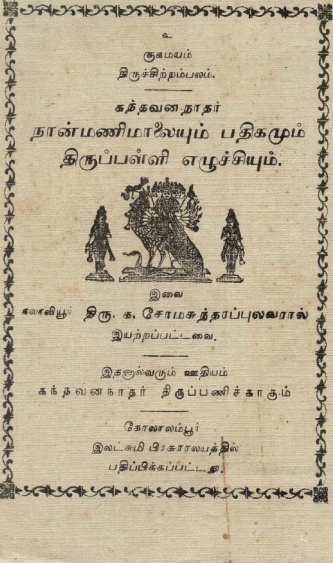 உ
குகமயம்
திருச்சிற்றம்பலம்.
கந்தவனநாதர்
நான்மணிமாலையும் பதிகமும்
திருப்பள்ளி எழுச்சியும்.
இவை
திரு. க. சோமசுந்தரப்புலவரால்
இயற்றப்பட்டவை.
இதனால்வரும் ஊதியம்
கந்தவனநாதர் திருப்பணிச்காகும்
கோலாலம்பூர்
இலட்சுமி பிரசுராலயத்தில்
பதிப்பிக்கப்பட்டது.